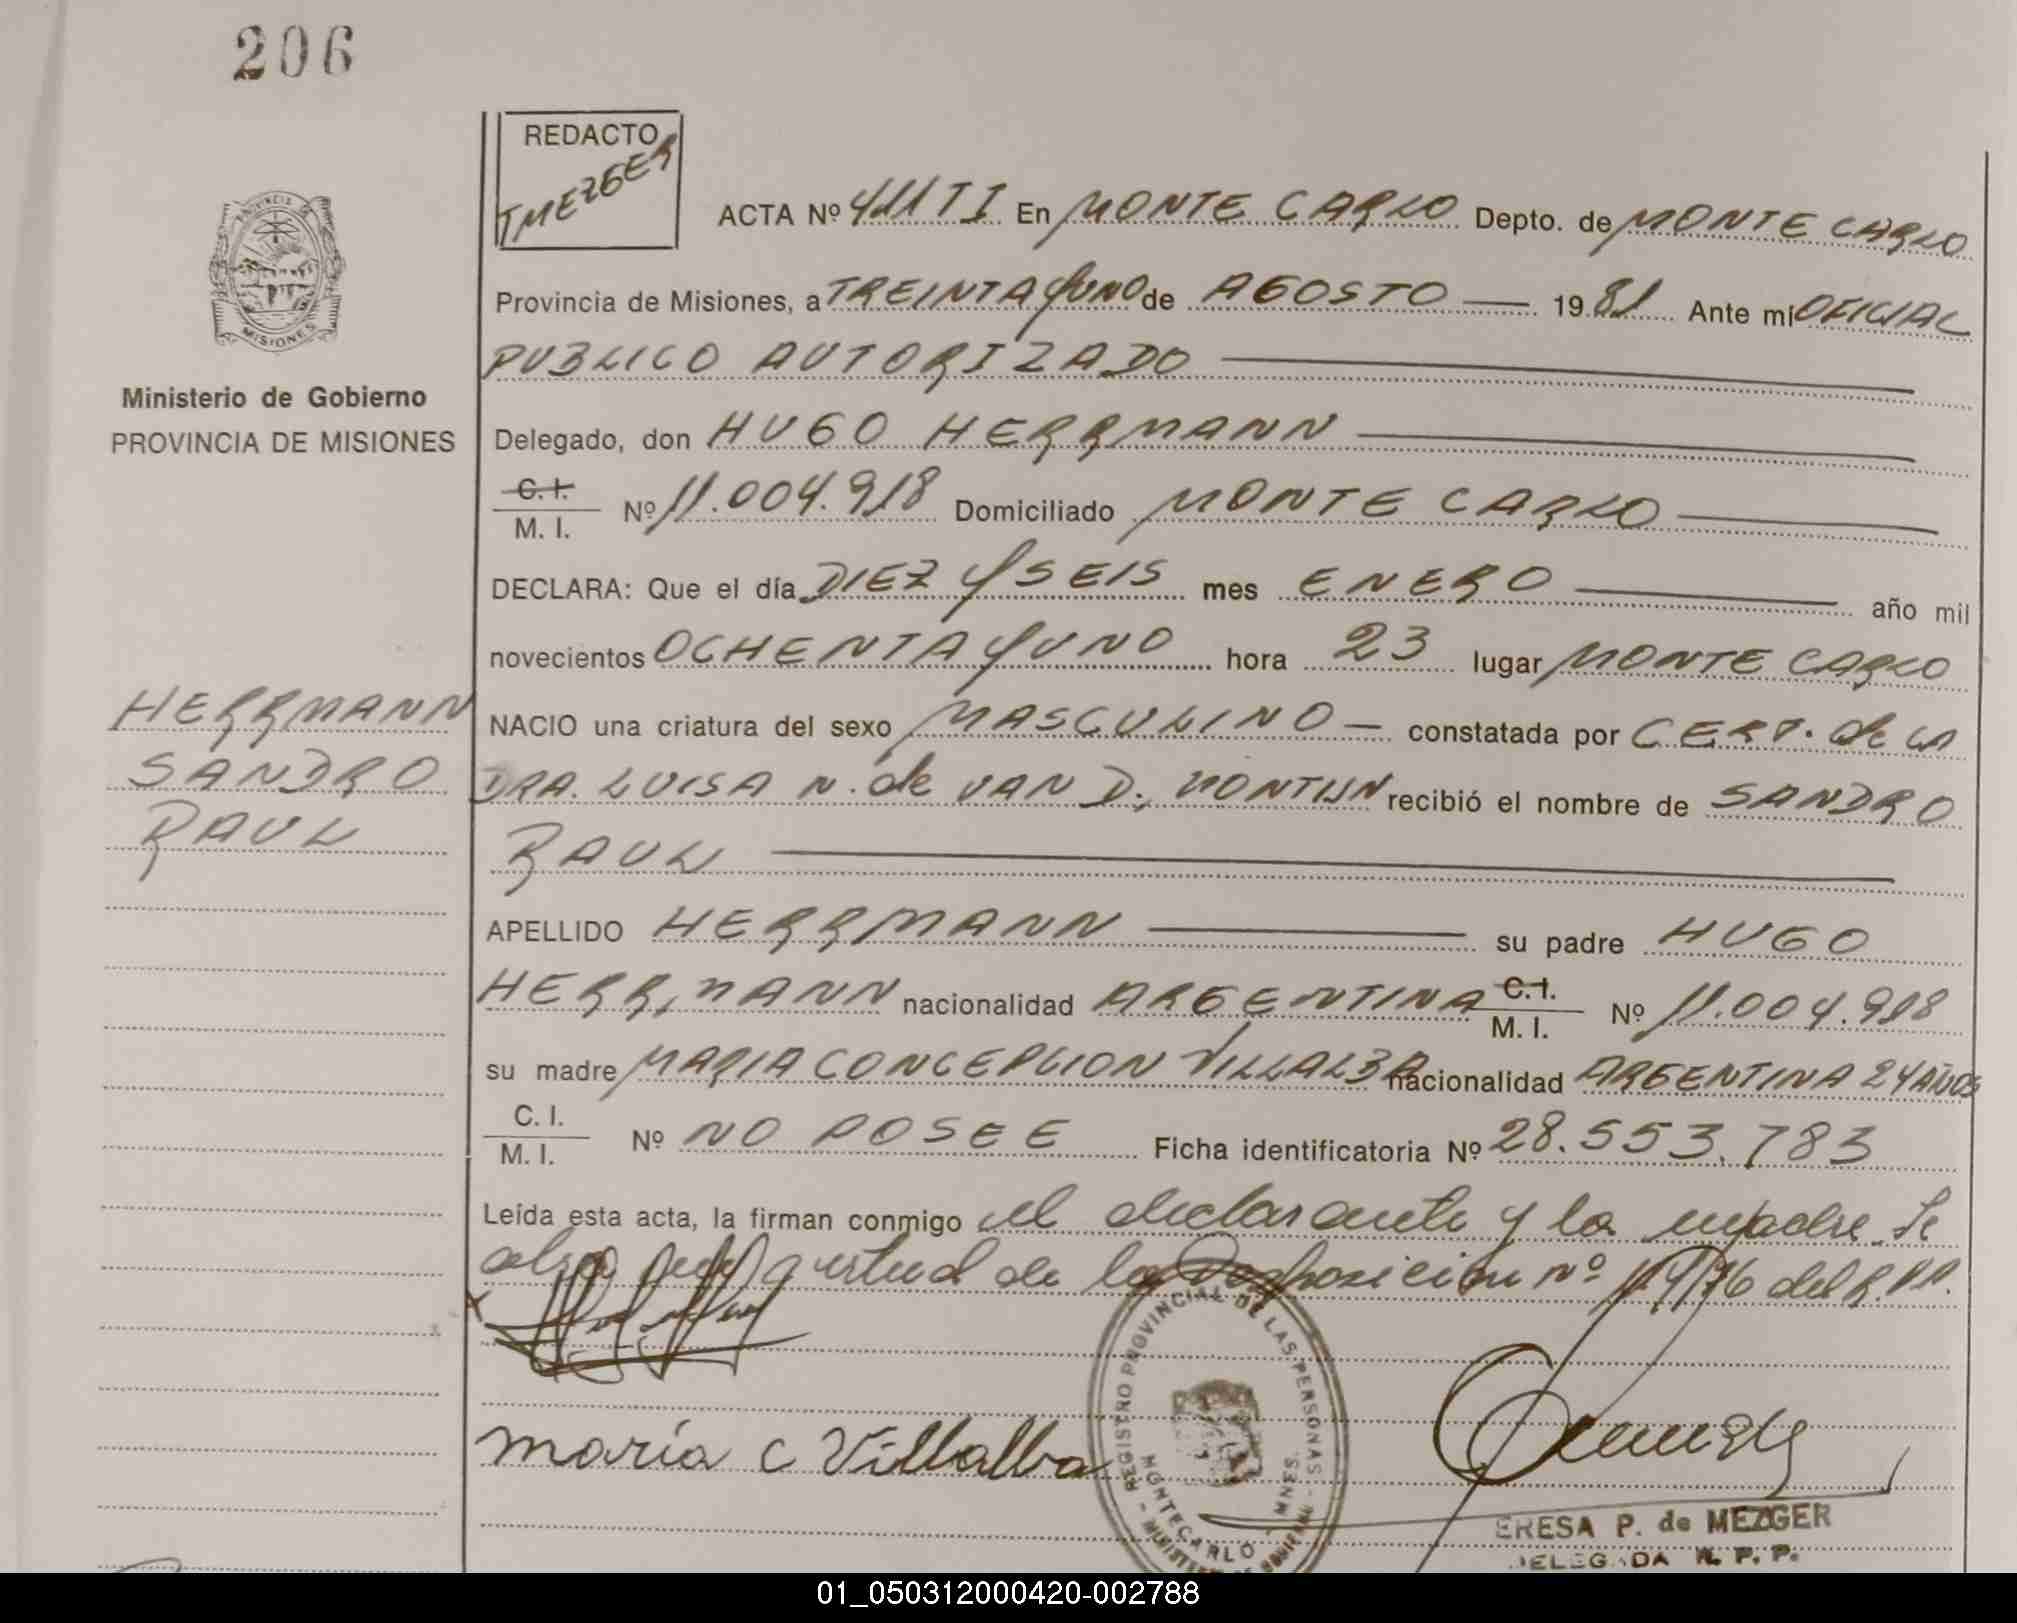 206
REDACTO
TMEZGER
ACTA Nº 411 T I En MONTE CARLO Depto. de MONTE CARLO
Provincia de Misiones, a TREINTA Y UNO de AGOSTO 1981 Ante mi OFICIAL
PUBLICO AUTORIZADO
Ministerio de Gobierno
PROVINCIA DE MISIONES
Delegado, don HUGO HERRMANN
C. I.
M. I. Nº 11.004.918 Domiciliado MONTE CARLO
DECLARA: Que el día DIEZ Y SEIS mes ENERO año mil
novecientos OCHENTA Y UNO hora 23 lugar MONTE CARLO
HERRMANN
SANDRO
RAUL
NACIO una criatura del sexo MASCULINO constatada por CERT. de la
DRA. LUISA N. de VAN D. MONTIJN recibió el nombre de SANDRO
RAUL
APELLIDO HERRMANN su padre HUGO
HERRMANN nacionalidad ARGENTINA C. I. M. I. Nº 11.004.918
su madre MARIA CONCEPCION VILLALBA nacionalidad ARGENTINA 24 AÑOS
C. I.
M. I. Nº NO POSEE Ficha identificatoria Nº 28.553.783
Leída esta acta, la firman conmigo el declarante y la madre. Se
virtud de la Disposición nº /76 del R.P.P.
maría c Villalba
REGISTRO PROVINCIAL DE LAS PERSONAS
MONTECARLO MNES.
ERESA P. de MEZGER
DELEGADA R. P. P.
PROVINCIA DE
MISIONES
01_050312000420-002788